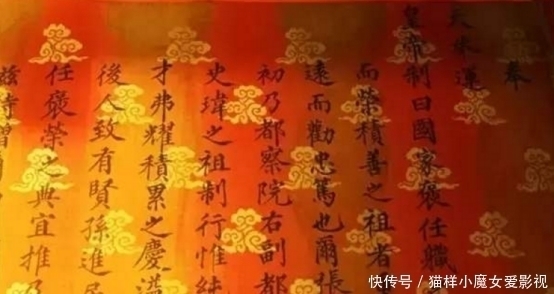 奉
天承運
皇帝制曰國家褒任職
而榮積善之祖者
遠而勸忠篤也爾張
初乃都察院右副都
史瑋之祖制行惟純
才弗耀積累之慶
後人致有賢孫進
任褒榮之典宜推
特贈
快传号／猫样小魔女爱影视